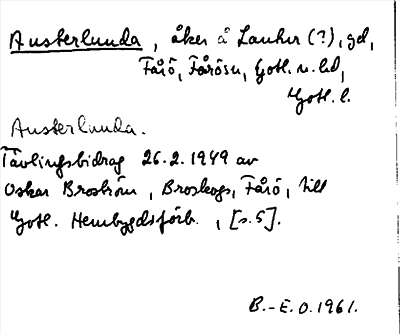 Austerlunda, åker å Lauter (?), gd,
Fårö, Fårösu, Gotl. n. hd,
Gotl. l.
Austerlunda.
Tävlingsbidrag 26.2.1949 av
Oskar Broström, Broskogs, Fårö, till
Gotl. Hembygdsförb., [s. 5].
B.-E.O. 1961.